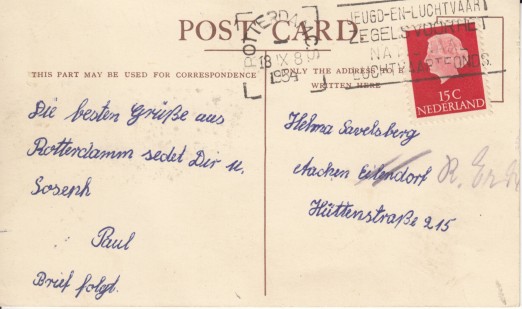 POST CARD
ROTTERDAM
18 IX 8
1954
JEUGD-EN-LUCHTVAART
ZEGELS VOOR HET
NAT
LUCHTVAARTFONDS.
15 C
NEDERLAND
THIS PART MAY BE USED FOR CORRESPONDENCE
ONLY THE ADDRESS TO BE
WRITTEN HERE
Die besten Grüße aus
Rotterdamm sedet Dir u.
Soseph
Paul
Brief folgt.
Helma Savelsberg
Aachen Eilendorf
Hüttenstraße 215